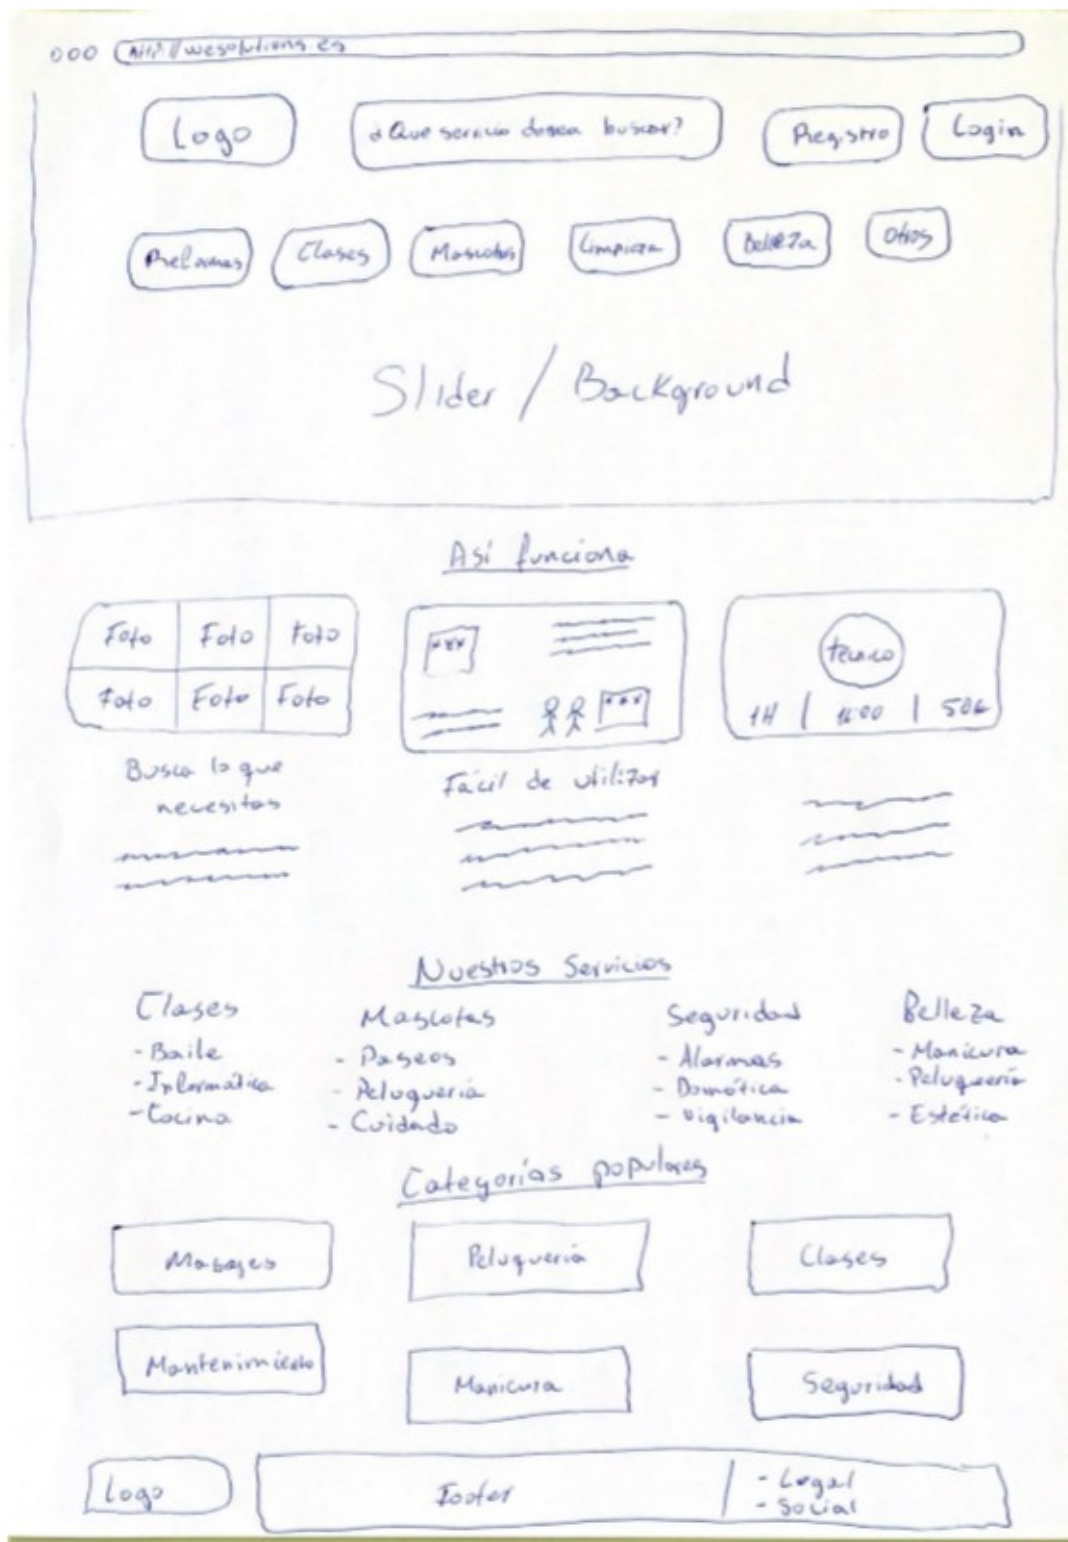 http://wesolutions.es
Logo
¿Que servicio desea buscar?
Registro
Login
Reformas
Clases
Mascotas
Limpieza
Belleza
Otros
Slider / Background
Así funciona
Foto Foto Foto
Foto Foto Foto
***
***
técnico
1H | 16:00 | 50€
Busca lo que
necesitas
Fácil de utilizar
Nuestros Servicios
Clases
- Baile
- Informática
- Cocina
Mascotas
- Paseos
- Peluquería
- Cuidado
Seguridad
- Alarmas
- Domótica
- Vigilancia
Belleza
- Manicura
- Peluquería
- Estética
Categorías populares
Masajes
Peluquería
Clases
Mantenimiento
Manicura
Seguridad
Logo
Footer
- Legal
- Social